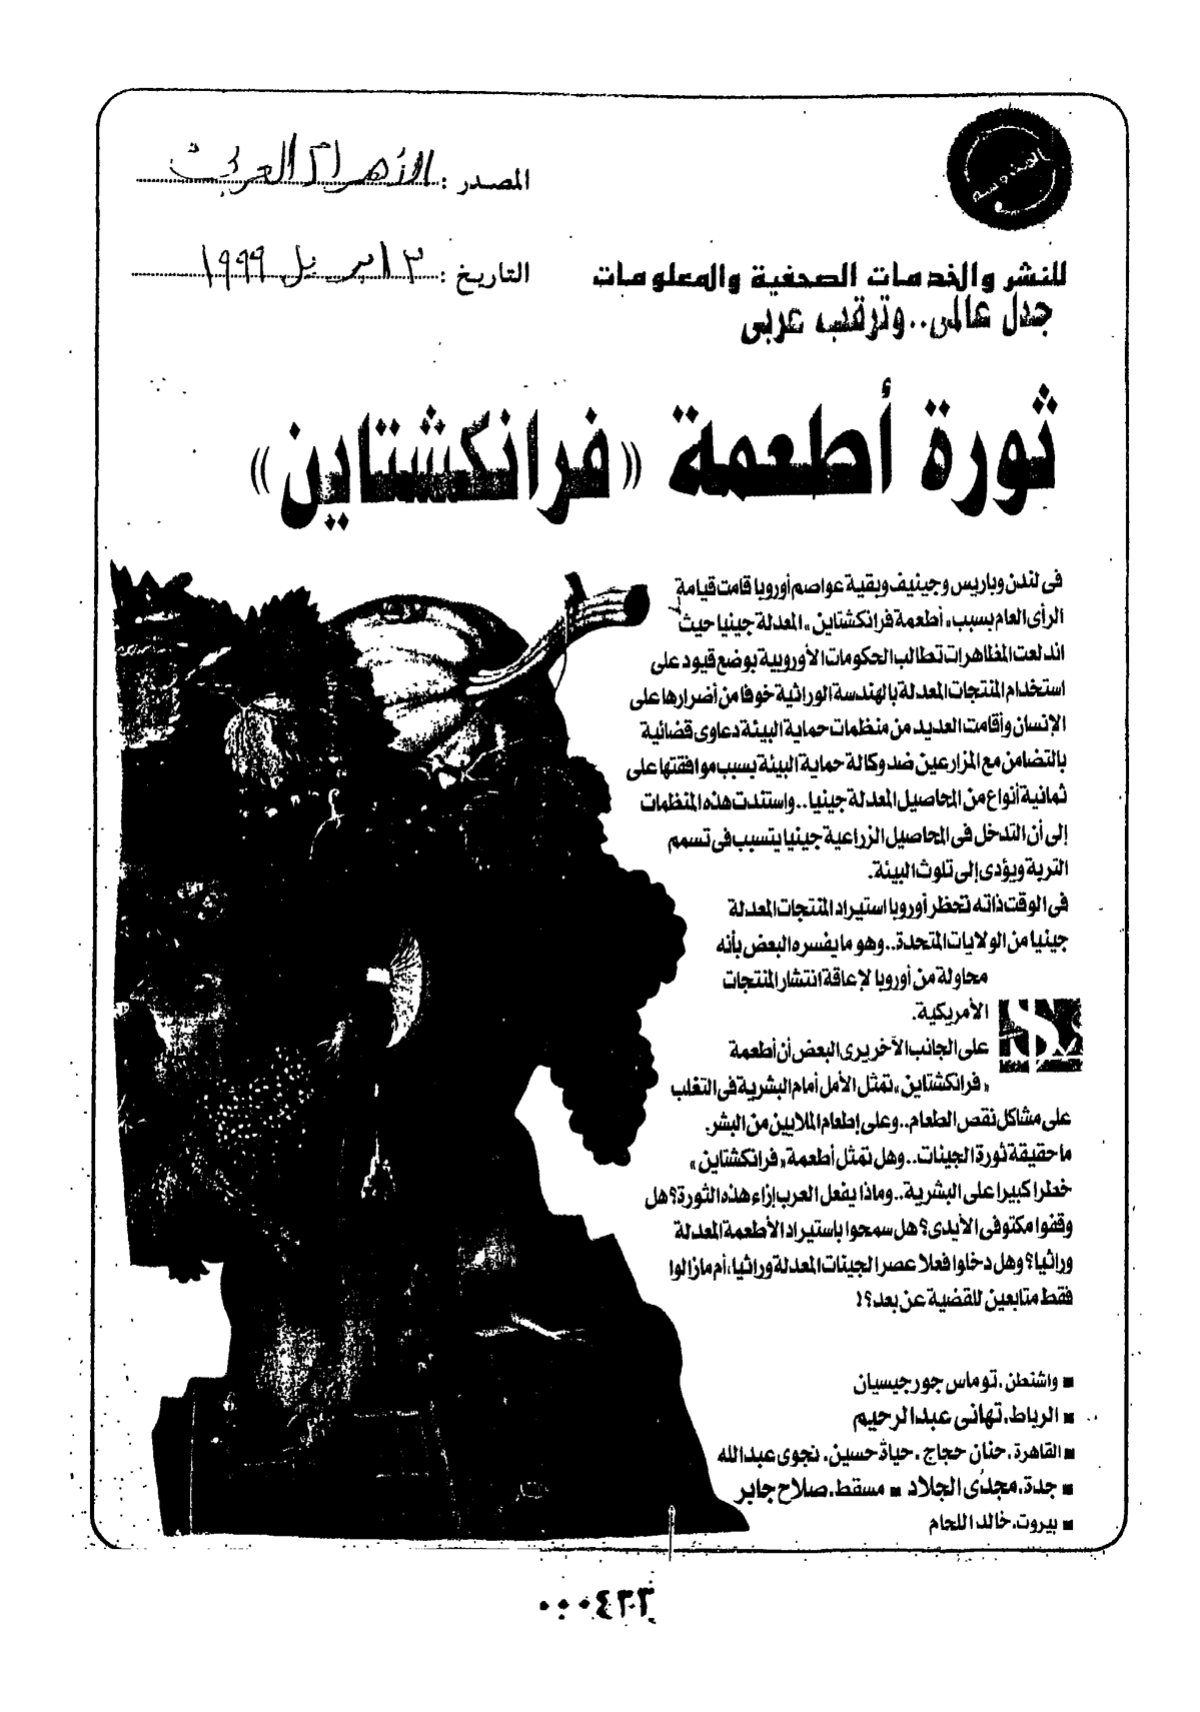 المصدر : الأهرام العربى
التاريخ : ٣ ابريل ١٩٩٩
للنشر والخدمات الصحفية والمعلومات
جدل عالمى..وترقب عربى
ثورة أطعمة «فرانكشتاين»
فى لندن وباريس وجينيف وبقية عواصم أوروبا قامت قيامة
الرأى العام بسبب «أطعمة فرانكشتاين» المعدلة جينيا حيث
اندلعت المظاهرات تطالب الحكومات الأوروبية بوضع قيود على
استخدام المنتجات المعدلة بالهندسة الوراثية خوفا من أضرارها على
الإنسان وأقامت العديد من منظمات حماية البيئة دعاوى قضائية
بالتضامن مع المزارعين ضد وكالة حماية البيئة بسبب موافقتها على
ثمانية أنواع من المحاصيل المعدلة جينيا..واستندت هذه المنظمات
إلى أن التدخل فى المحاصيل الزراعية جينيا يتسبب فى تسمم
التربة ويؤدى إلى تلوث البيئة.
فى الوقت ذاته تحظر أوروبا استيراد المنتجات المعدلة
جينيا من الولايات المتحدة..وهو ما يفسره البعض بأنه
محاولة من أوروبا لإعاقة انتشار المنتجات
الأمريكية.
على الجانب الآخر يرى البعض أن أطعمة
«فرانكشتاين» تمثل الأمل أمام البشرية فى التغلب
على مشاكل نقص الطعام..وعلى إطعام الملايين من البشر.
ما حقيقة ثورة الجينات..وهل تمثل أطعمة «فرانكشتاين»
خطرا كبيرا على البشرية..وماذا يفعل العرب إزاء هذه الثورة؟ هل
وقفوا مكتوفى الأيدى؟ هل سمحوا باستيراد الأطعمة المعدلة
وراثيا؟ وهل دخلوا فعلا عصر الجينات المعدلة وراثيا، أم مازالوا
فقط متابعين للقضية عن بعد؟!
■ واشنطن.توماس جورجيسيان
■ الرباط.تهانى عبدالرحيم
■ القاهرة.حنان حجاج.حياة حسين.نجوى عبدالله
■ جدة.مجدى الجلاد ■ مسقط.صلاح جابر
■ بيروت.خالد اللحام
٠٠٠٤٢٣